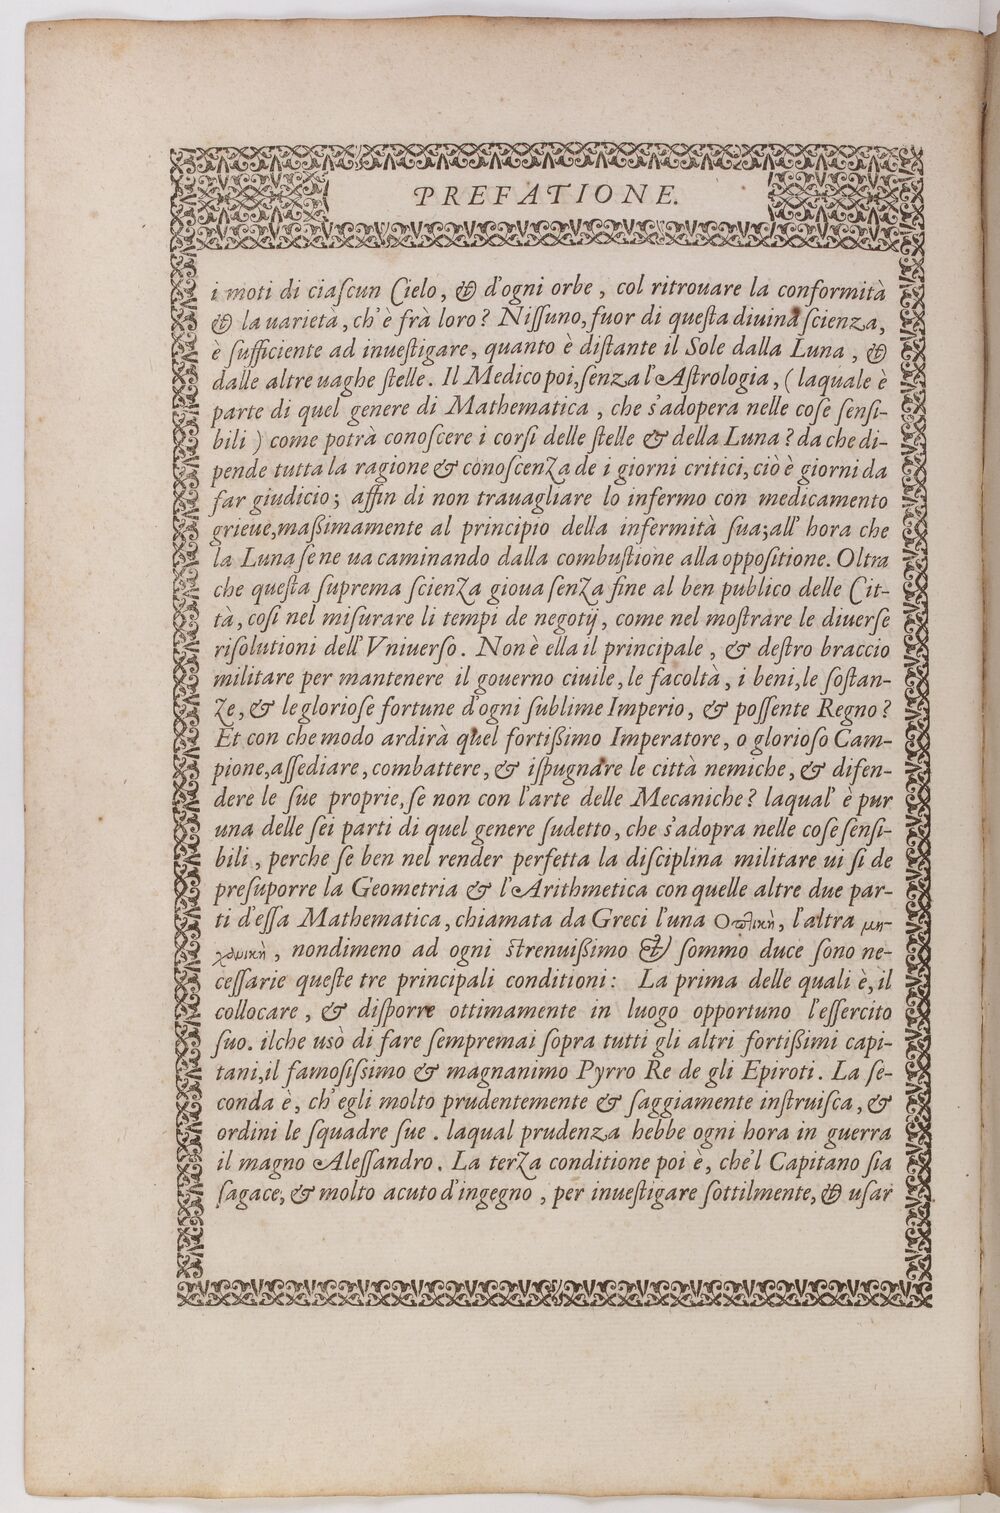 PREFATIONE.
i moti di ciaſcun Cielo, & d'ogni orbe, col ritrouare la conformità
& la uarietà, ch'è frà loro? Niſſuno, fuor di queſta diuina ſcienza,
è ſufficiente ad inueſtigare, quanto è diſtante il Sole dalla Luna, &
dalle altre uaghe ſtelle. Il Medico poi, ſenza l'Aſtrologia, (laquale è
parte di quel genere di Mathematica, che s'adopera nelle coſe ſenſi-
bili) come potrà conoſcere i corſi delle ſtelle & della Luna? da che di-
pende tutta la ragione & conoſcenza de i giorni critici, ciò è giorni da
far giudicio; affin di non trauagliare lo infermo con medicamento
grieue, maßimamente al principio della infermità ſua; all'hora che
la Luna ſe ne ua caminando dalla combuſtione alla oppoſitione. Oltra
che queſta ſuprema ſcienza gioua ſenza fine al ben publico delle Cit-
tà, coſi nel miſurare li tempi de negotij, come nel moſtrare le diuerſe
riſolutioni dell'Vniuerſo. Non è ella il principale, & deſtro braccio
militare per mantenere il gouerno ciuile, le facoltà, i beni, le ſoſtan-
ze, & le glorioſe fortune d'ogni ſublime Imperio, & poſſente Regno?
Et con che modo ardirà quel fortißimo Imperatore, o glorioſo Cam-
pione, aſſediare, combattere, & iſpugnare le città nemiche, & difen-
dere le ſue proprie, ſe non con l'arte delle Mecaniche? laqual' è pur
una delle ſei parti di quel genere ſudetto, che s'adopra nelle coſe ſenſi-
bili, perche ſe ben nel render perfetta la diſciplina militare ui ſi de
preſuporre la Geometria & l'Arithmetica con quelle altre due par-
ti d'eſſa Mathematica, chiamata da Greci l'una Οπτικὴ, l'altra μη-
χανικὴ, nondimeno ad ogni ſtrenuißimo & ſommo duce ſono ne-
ceſſarie queſte tre principali conditioni: La prima delle quali è, il
collocare, & diſporre ottimamente in luogo opportuno l'eſſercito
ſuo. ilche usò di fare ſempremai ſopra tutti gli altri fortißimi capi-
tani, il famoſiſſimo & magnanimo Pyrro Re de gli Epiroti. La ſe-
conda è, ch'egli molto prudentemente & ſaggiamente inſtruiſca, &
ordini le ſquadre ſue. laqual prudenza hebbe ogni hora in guerra
il magno Aleſſandro. La terza conditione poi è, che'l Capitano ſia
ſagace, & molto acuto d'ingegno, per inueſtigare ſottilmente, & uſar